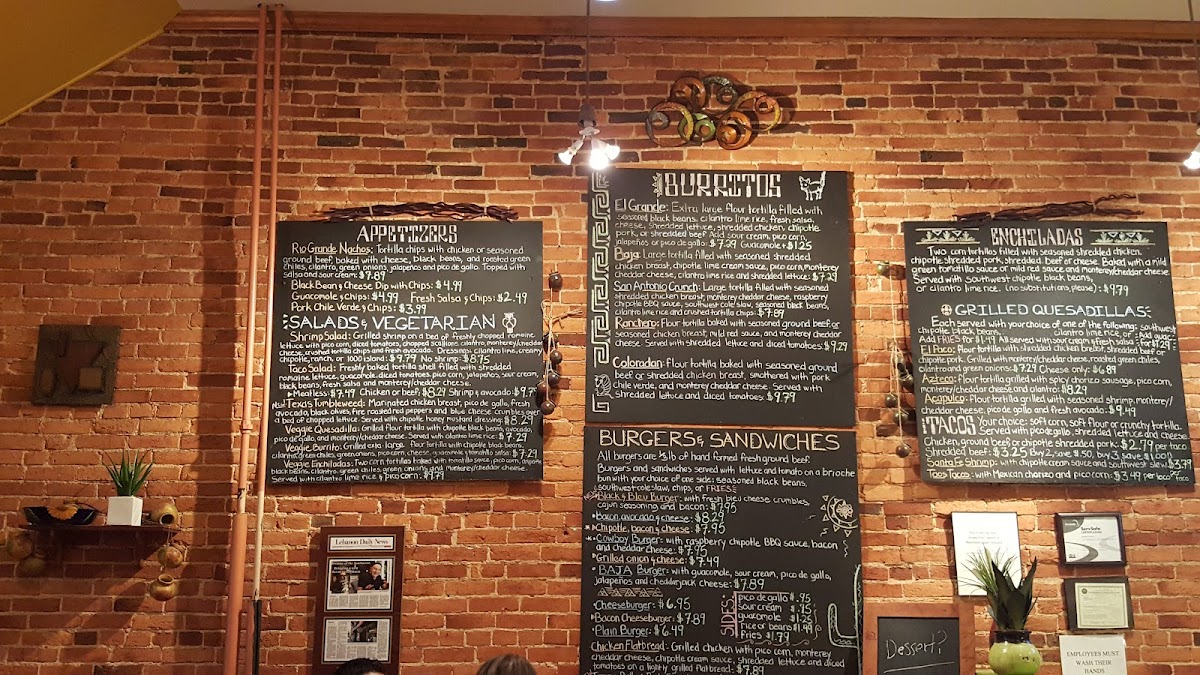 APPETIZERS
Rio Grande Nachos: Tortilla chips with chicken or seasoned
ground beef, baked with cheese, black beans, and roasted green
chiles, cilantro, green onions, jalapeños and pico de gallo. Topped with
salsa and sour cream: $7.89
Black Bean & Cheese Dip with Chips: $4.99
Guacamole & chips: $4.99 Fresh Salsa & Chips: $2.49
Pork Chile Verde & Chips: $3.99
SALADS & VEGETARIAN
Shrimp Salad: Grilled shrimp on a bed of freshly chopped romaine
lettuce with pico corn, diced tomatoes, chopped scallions, cilantro, monterey/cheddar
cheese, crushed tortilla chips and fresh avocado. Dressings: cilantro lime, creamy
chipotle, ranch, or 1000 island: $9.79 No Shrimp: $8.75
Taco Salad: Freshly baked tortilla shell filled with shredded
romaine lettuce, guacamole, diced tomatoes, pico corn, jalapeños, sour cream,
black beans, fresh salsa and monterey/cheddar cheese.
Meatless: $7.49 Chicken or beef: $8.29 Shrimp & avocado: $9.79
Texas Tumbleweed: Marinated chicken breast, pico de gallo, fresh
avocado, black olives, fire roasted red peppers and blue cheese crumbles over
a bed of chopped lettuce. Served with chipotle honey mustard dressing: $8.29
Veggie Quesadilla: Grilled flour tortilla with chipotle black beans, avocado,
pico de gallo, and monterey/cheddar cheese. Served with cilantro lime rice: $7.29
Veggie Burrito: Grilled extra large flour tortilla with chipotle black beans,
cilantro, green chiles, green onions, pico corn, cheese, guacamole & tomatillo salsa: $7.29
Veggie Enchiladas: Two corn tortillas baked with tomatillo sauce, pico corn, chipotle
black beans, cilantro, green chiles, green onions, and monterey/cheddar cheese.
Served with cilantro lime rice & pico corn: $7.79
BURRITOS
El Grande: Extra large flour tortilla filled with
seasoned black beans, cilantro lime rice, fresh salsa,
cheese, shredded lettuce, shredded chicken, chipotle
pork, or shredded beef. Add sour cream, pico corn,
jalapeños or pico de gallo: $7.29 Guacamole + $1.25
Baja: Large tortilla filled with seasoned shredded
chicken breast, chipotle lime cream sauce, pico corn, monterey
cheddar cheese, cilantro lime rice and shredded lettuce: $7.29
San Antonio Crunch: Large tortilla filled with seasoned
shredded chicken breast, monterey cheddar cheese, raspberry
chipotle BBQ sauce, southwest cole slaw, seasoned black beans,
cilantro lime rice and crushed tortilla chips: $7.89
Ranchero: Flour tortilla baked with seasoned ground beef or
seasoned chicken breast, mild red sauce, and monterey cheddar
cheese. Served with shredded lettuce and diced tomatoes: $9.29
Coloradan: flour tortilla, baked with seasoned ground
beef or shredded chicken breast, smothered with pork
chile verde, and monterey cheddar cheese. Served with
shredded lettuce and diced tomatoes $9.79
BURGERS & SANDWICHES
All burgers are 1/3 lb of hand formed fresh ground beef.
Burgers and sandwiches served with lettuce and tomato on a brioche
bun with your choice of one side: seasoned black beans,
southwest cole slaw, chips, or FRIES
Black & Bleu Burger: with fresh bleu cheese crumbles,
cajun seasoning, and bacon: $7.95
Bacon, avocado & cheese: $8.29
Chipotle, bacon & cheese: $7.95
Cowboy Burger: with raspberry chipotle BBQ sauce, bacon
and cheddar cheese: $7.95
Grilled onion & cheese: $7.49
BAJA Burger: with guacamole, sour cream, pico de gallo,
jalapeños and cheddarjack cheese: $7.89
Cheeseburger: $6.95
Bacon Cheeseburger: $7.89
Plain Burger: $6.49
SIDES:
pico de gallo $.95
sour cream $.75
guacamole $1.25
rice or beans $1.49
fries $1.79
Chicken Flatbread: Grilled chicken with pico corn, monterey
cheddar cheese, chipotle cream sauce, shredded lettuce and diced
tomatoes on a lightly grilled flatbread: $7.89
ENCHILADAS
Two corn tortillas filled with seasoned shredded chicken,
chipotle shredded pork, shredded beef or cheese. Baked with a mild
green tomatillo sauce or mild red sauce and monterey/cheddar cheese.
Served with Southwest chipotle black beans,
or cilantro lime rice. (no substitutions, please): $9.79
GRILLED QUESADILLAS:
Each served with your choice of one of the following: southwest
chipotle black beans, cilantro lime rice, or
Add FRIES for $1.49 All served with sour cream & fresh salsa
El Paso: flour tortilla with shredded chicken breast, shredded beef, or
chipotle pork. Grilled with monterey/cheddar cheese, roasted green chiles,
cilantro and green onions: $7.29 Cheese only: $6.89
Azteca: flour tortilla grilled with spicy chorizo sausage, pico corn,
monterey/cheddar cheese and cilantro: $8.29
Acapulco: Flour tortilla grilled with seasoned shrimp, monterey/
cheddar cheese, pico de gallo and fresh avocado: $9.49
TACOS Your choice: soft corn, soft flour or crunchy tortilla.
Served with pico de gallo, shredded lettuce and cheese
Chicken, ground beef, or chipotle shredded pork: $2.79 per taco
Shredded beef: $3.25 (buy 2, save $.50, buy 3, save $1.00)
Santa Fe Shrimp: with chipotle cream sauce and southwest slaw: $3.39
Taos Tacos: with Mexican chorizo and pico corn: $3.49 per taco
Lebanon Daily News
Dessert?
EMPLOYEES MUST
WASH THEIR
HANDS